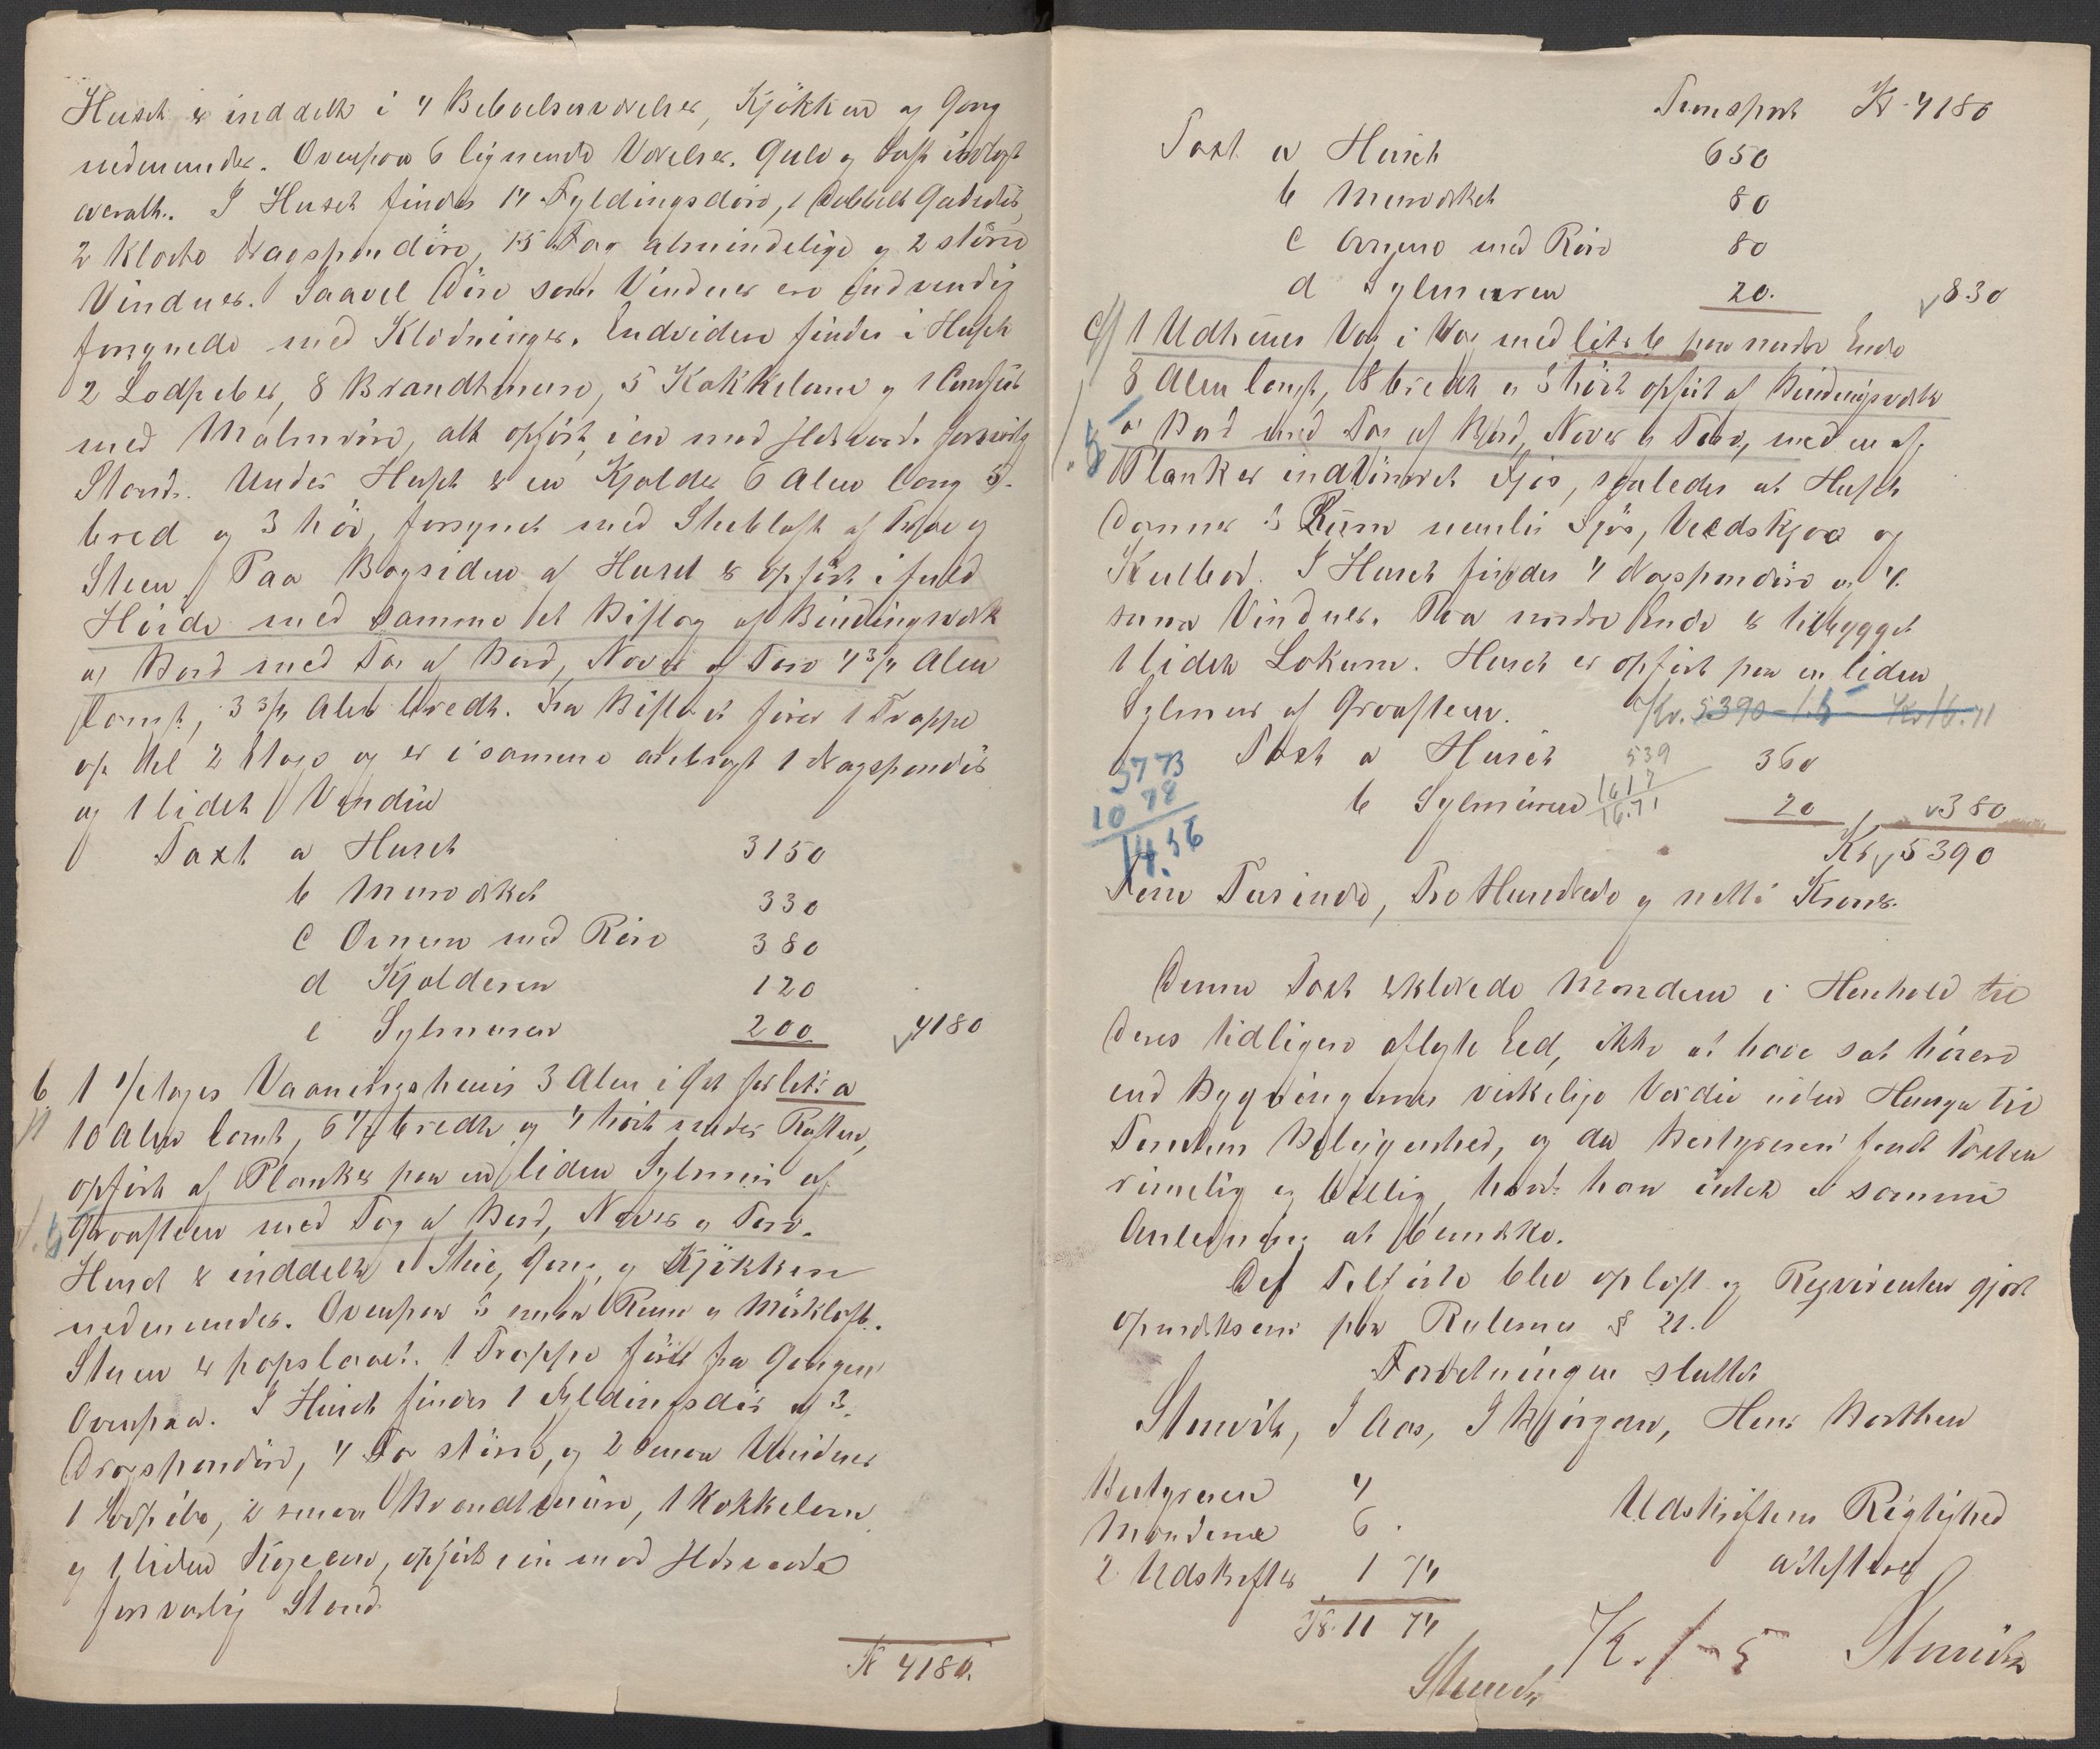 Huset er inddelt i 4 Beboelsesværelser, Kjökken og Gang
nedenunder. Ovenpaa 6 lignende Værelser. Gulv og Loft indlagt
overalt. I Huset findes 14 Fyldingsdöre, 1 dobbelt Gadedör,
2 klædte Nagspondöre, 15 Fag almindelige og 2 större
Vinduer. Saavel Döre som Vinduer ere indvendig
forsynede med Klædninger. Endvidere findes i Huset
2 Lodpiber, 8 Brandtmure, 5 Kakkelovne og 1 Comfür
med Malmrör, alt opfört i en mod Ildsvaade forsvarlig
Stand. Under Huset er en Kjælder 6 Alen lang 5
bred og 3 höi, forsynet med Stubloft af Træe og
Steen. Paa Bagsiden af Huset er opfört i fuld
Höide med samme et Bislag af Bindingsverk
og Bord med Tag af Bord, Never og Törv 4 3/4 Alen
langt, 3 3/4 Alen bredt. Fra Bislaget förer 1 Trappe
op til 2 Etage og er i samme anbragt 1 Nagspondör
og 1 lidet Vindue
Taxt a Huset 3150
b Murværket 330
c Ovnene med Röre 380
d Kjælderen 120
e Sylmuren 200 4180
b 1 1/Etages Vaaningshuus 3 Alen i Öst for litr a
10 Alen langt, 6 1/2 bredt og 4 höit under Raften,
opfört af Planker paa en liden Sylmur af
Graasteen med Tag af Bord, Never og Törv.
Huset er inddelt i Stue, Gang og Kjökken
nedenunder. Ovenpaa 3 smaa Rum og Mörkloft.
Stuen er papslaaet. 1 Trappe förer fra Gangen
Ovenpaa. I Huset findes 1 Fyldingsdör og 3
Nagspondöre, 4 Fag större, og 2 smaa Vinduer
1 Lodpibe, 2 smaa Brandtmure, 1 Kakkelovn
og 1 liden Kogeovn, opfört i en mod Ildsvaade
forsvarlig Stand.
Kr 4180.
Transport Kr 4180
Taxt a Huset 650
b Murværket 80
c Ovnene med Röre 80
d Sylmuren 20. 830
c/ 1 Udhuus Væg i Væg med litr b paa nordre Ende
8 Alen langt, 8 bredt og 3 höit opfört af Bindingsværk
og Bord med Tag af Bord, Never og Törv, med en af
Planker indtömret Fjös, saaledes at Huset
danner 3 Rum nemlig Fjös, Vedskjaa og
Kulbod. I Huset findes 4 Nagspondöre og 4
smaa Vinduer. Paa nordre Ende er tilbygget
1 lidet Lokum. Huset er opfört paa en liden
Sylmur af Graasteen. Kr. 5390 - Kr 16.71
Taxt a Huset 539 360
b Sylmuren 1617 20 380
16.71
3773
1078
14.56
Kr 5390
Fem Tusinde, Tre Hundrede og nitti Kroner.
Denne Taxt erklærede Mændene i Henhold til
deres tidligere aflagte Eed, ikke at have sat höiere
end Bygningernes virkelige Værdie uden Hensyn til
Tomtens Beleigenhed, og da Bestyreren fandt Taxten
rimelig og billig, havde han intet i samme
Anledning at bemærke.
Det Tilförte blev oplæst og Reqvirenten gjort
opmærksom paa Reglerne § 21.
Forretningen sluttet
J Aas, J Björgan, Hans Barthen
Bestyreren 4
Mændene 6
2 Udskrifter 1 74
Kr. 11 74
Udskriftens Rigtighed
attesterer
K. 1 - 5